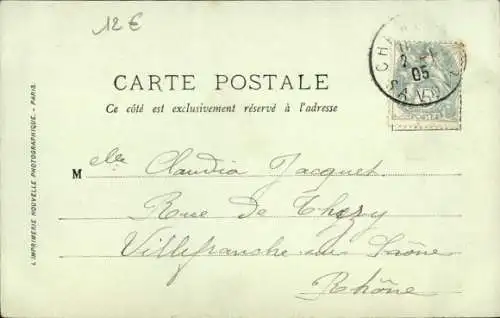 12€
CARTE POSTALE
Ce côté est exclusivement réservé à l'adresse
Melle Claudia Jacquet
Rue de Thizy
Villefranche sur Saône
Rhône
L'IMPRIMERIE NOUVELLE PHOTOGRAPHIQUE. - PARIS.
05